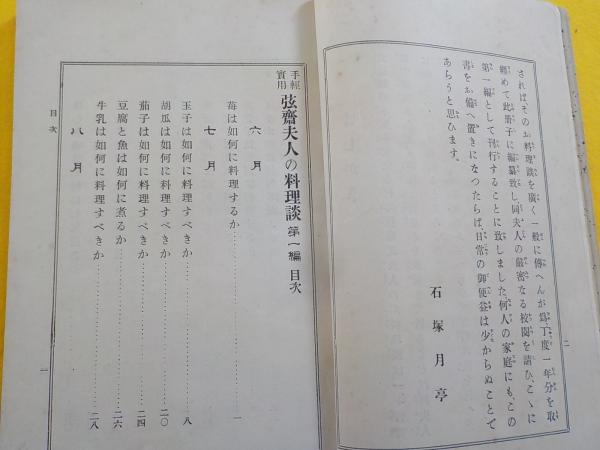 さればそのお料理談を廣く一般に傳へんが爲丁度一年分を取
纒めて此册子に編纂致し同夫人の嚴密なる校閲を請ひ、こゝに
第一編として刊行することに致しました、何人の家庭にも、この
書をお備へ置きになつたらば、日常の御便益は少からぬことで
あらうと思ひます。
石塚月亭
二
手輕
實用
弦齋夫人の料理談 第一編 目次
六月
苺は如何に料理するか……………一
七月
玉子は如何に料理すべきか……………八
胡瓜は如何に料理すべきか……………二〇
茄子は如何に料理すべきか……………二四
豆腐と魚は如何に煮るか……………二六
八月
牛乳は如何に料理すべきか……………二八
目次
一